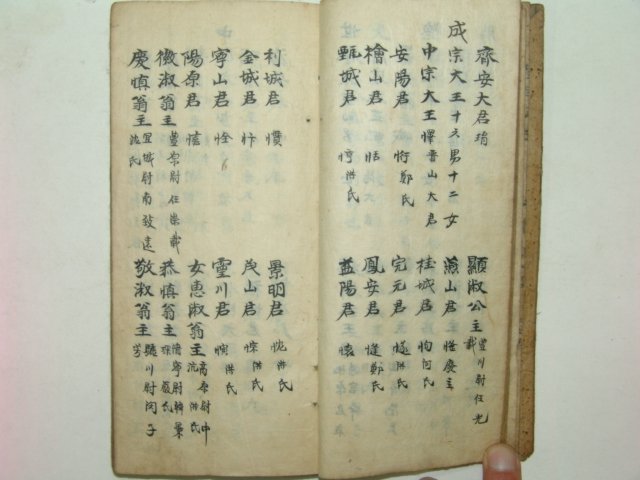 齊安大君 琄
成宗大王十六男十二女 顯淑公主 豊川尉任光載
中宗大王 懌晋山大君 燕山君 㦕廢主
安陽君 㤚鄭氏 桂城君 恂河氏
檜山君 恬 完元君 㥞洪氏
甄城君 惇洪氏 鳳安君 㦀鄭氏
益陽君 懷
利城君 慣 景明君 忱洪氏
金城君 茂山君 悰洪氏
寧山君 恮 靈川君 洪氏
陽原君 憘 女惠淑翁主 高原尉申沆洪氏
徽淑翁主 豊原尉任崇載 恭慎翁主 淸寧尉韓景琛嚴氏
慶慎翁主 宜城尉南致遠沈氏 敬淑翁主 驪川尉閔子芳